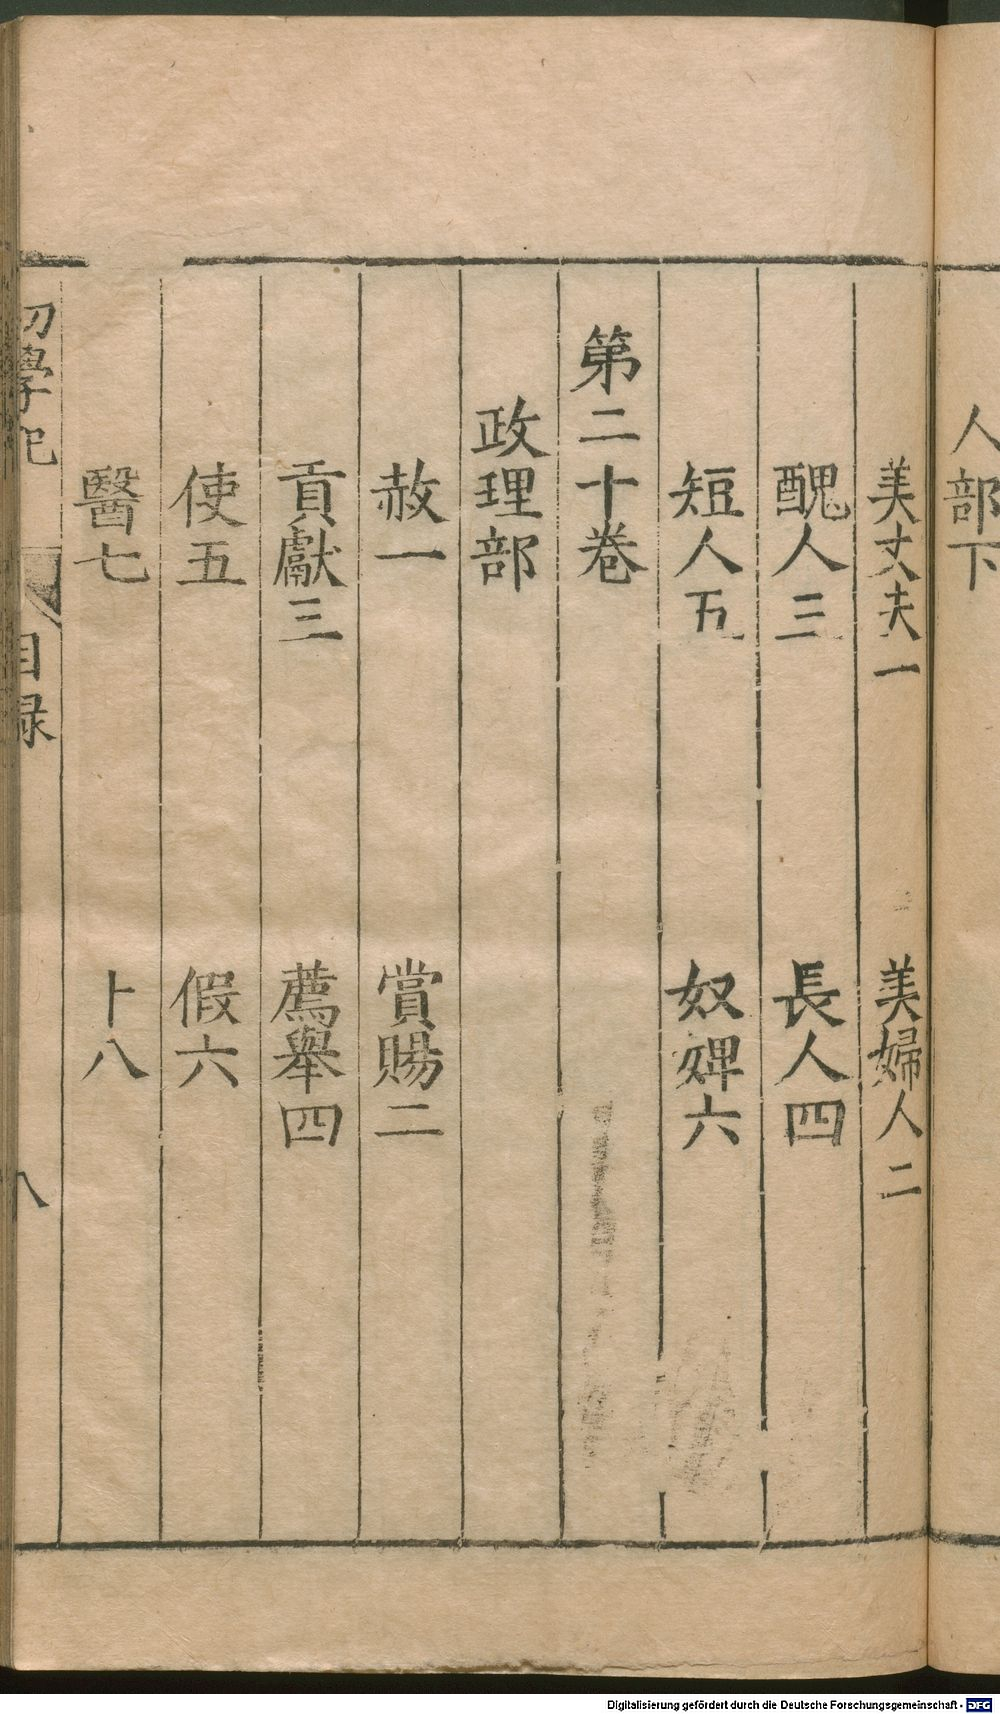 人部下
美丈夫一　美婦人二
醜人三　長人四
短人五　奴婢六
第二十卷
政理部
赦一　賞賜二
貢獻三　薦舉四
使五　假六
醫七　卜八
初學記　目録　八
Digitalisierung gefördert durch die Deutsche Forschungsgemeinschaft - DFG